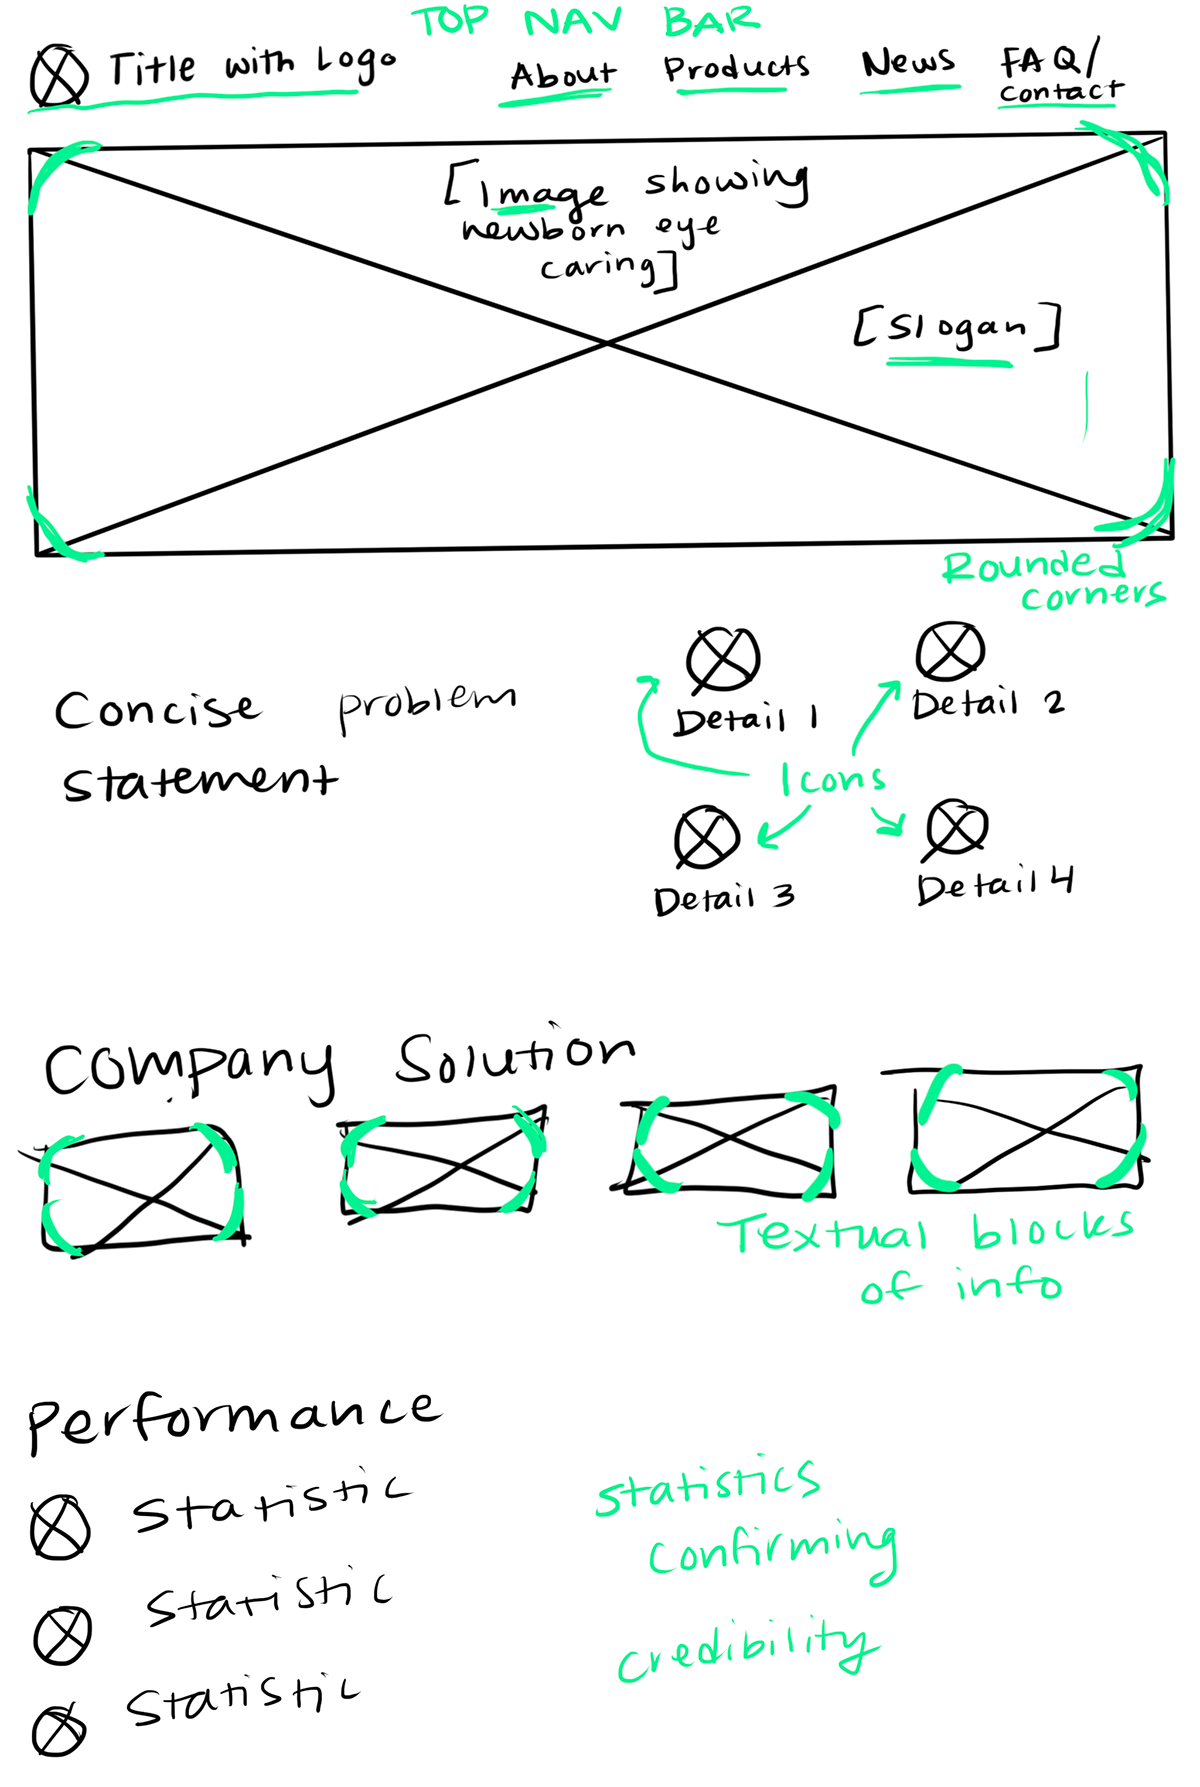 TOP NAV BAR
Title with Logo
About
Products
News
FAQ/
Contact
[Image showing
newborn eye
caring]
[Slogan]
Rounded
corners
Concise problem
statement
Detail 1
Detail 2
Icons
Detail 3
Detail 4
Company Solution
Textual blocks
of info
Performance
Statistic
Statistic
Statistic
statistics
confirming
credibility